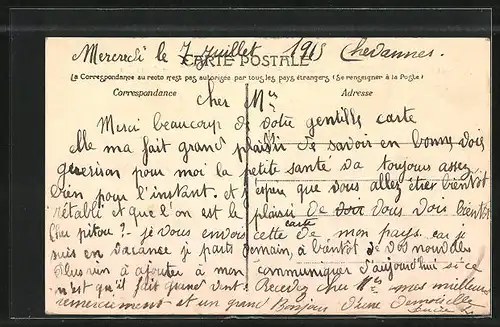 Mercredi le 7 juillet 1915 Chevannes.
CARTE POSTALE
La Correspondance au recto n'est pas autorisée par tous les pays étrangers (Se renseigner à la Poste)
Correspondance Adresse
cher Mr
Merci beaucoup de votre gentille carte
elle ma fait grand plaisir de savoir en bonne vois
guerison pour moi la petite santé va toujours assez
bien pour l'instant. et j'espere que vous allez être bientôt
rétabli et que l'on est le plaisir de vous vois bientôt
Chez pitou? - je vous envois cette carte de mon pays. car je
suis en vacance je parts demain, à bientôt de vos nouvelles
Plus rien à ajouter à mon communiquer d'aujourd'hui si ce
n'est qu'il fait grand vent. Recevez cher Mr mes meilleurs
remerciement et un grand Bonjour d'une demoiselle